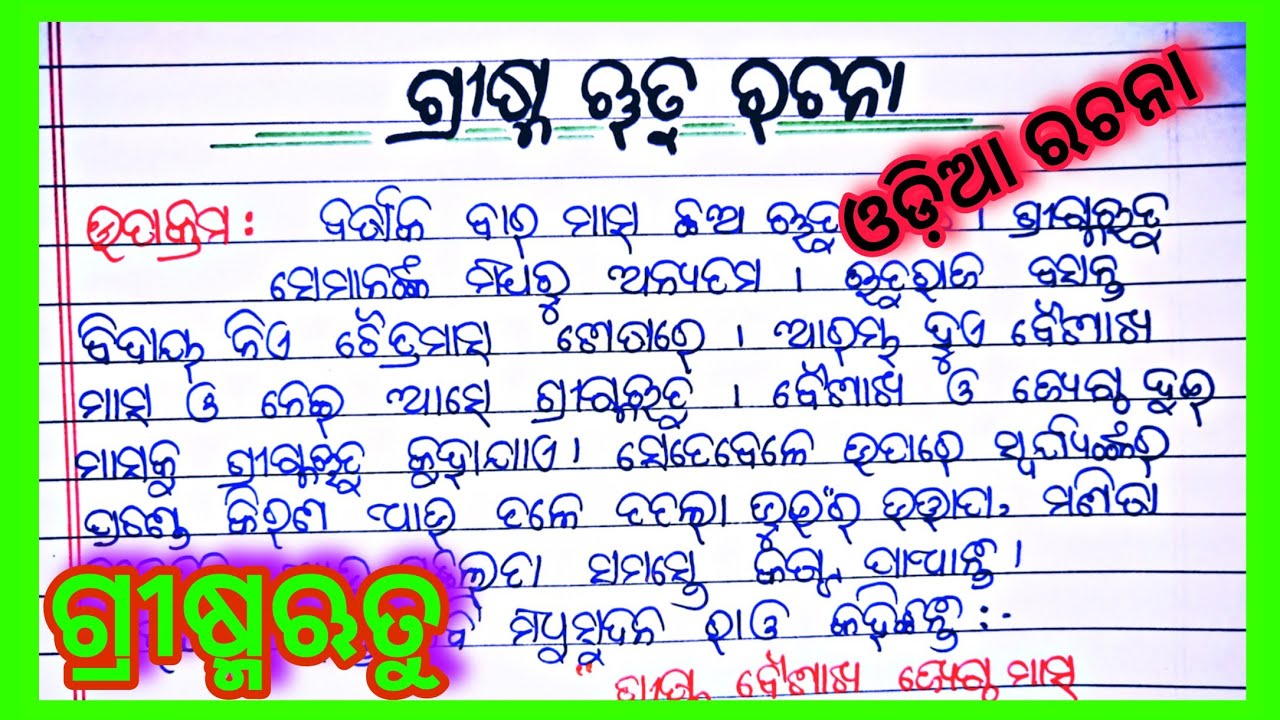 ଗ୍ରୀଷ୍ମ ଋତୁ ରଚନା
ଓଡ଼ିଆ ରଚନା
ଉପକ୍ରମ : ବର୍ଷକ ବାର ମାସ ଛଅ ଋତୁ । ଗ୍ରୀଷ୍ମଋତୁ
ସେମାନଙ୍କ ମଧ୍ୟରୁ ଅନ୍ୟତମ । ଋତୁରାଜ ବସନ୍ତ
ବିଦାୟ ନିଏ ଚୈତ୍ରମାସ ଶେଷରେ । ଆରମ୍ଭ ହୁଏ ବୈଶାଖ
ମାସ ଓ ନେଇ ଆସେ ଗ୍ରୀଷ୍ମଋତୁ । ବୈଶାଖ ଓ ଜ୍ୟେଷ୍ଠ ଦୁଇ
ମାସକୁ ଗ୍ରୀଷ୍ମଋତୁ କୁହାଯାଏ । ସେତେବେଳେ ଉପରେ ସୂର୍ଯ୍ୟଙ୍କର
ପ୍ରଚଣ୍ଡ କିରଣ ଆଉ ତଳେ ତତଲା ଭୂଇଁର ଉତ୍ତାପ,
ସମସ୍ତେ କଷ୍ଟ ପାଆନ୍ତି ।
ମଧୁସୂଦନ ରାଓ କହିଛନ୍ତି :-
ଗ୍ରୀଷ୍ମଋତୁ
" ବୈଶାଖ ଜ୍ୟେଷ୍ଠ ମାସ